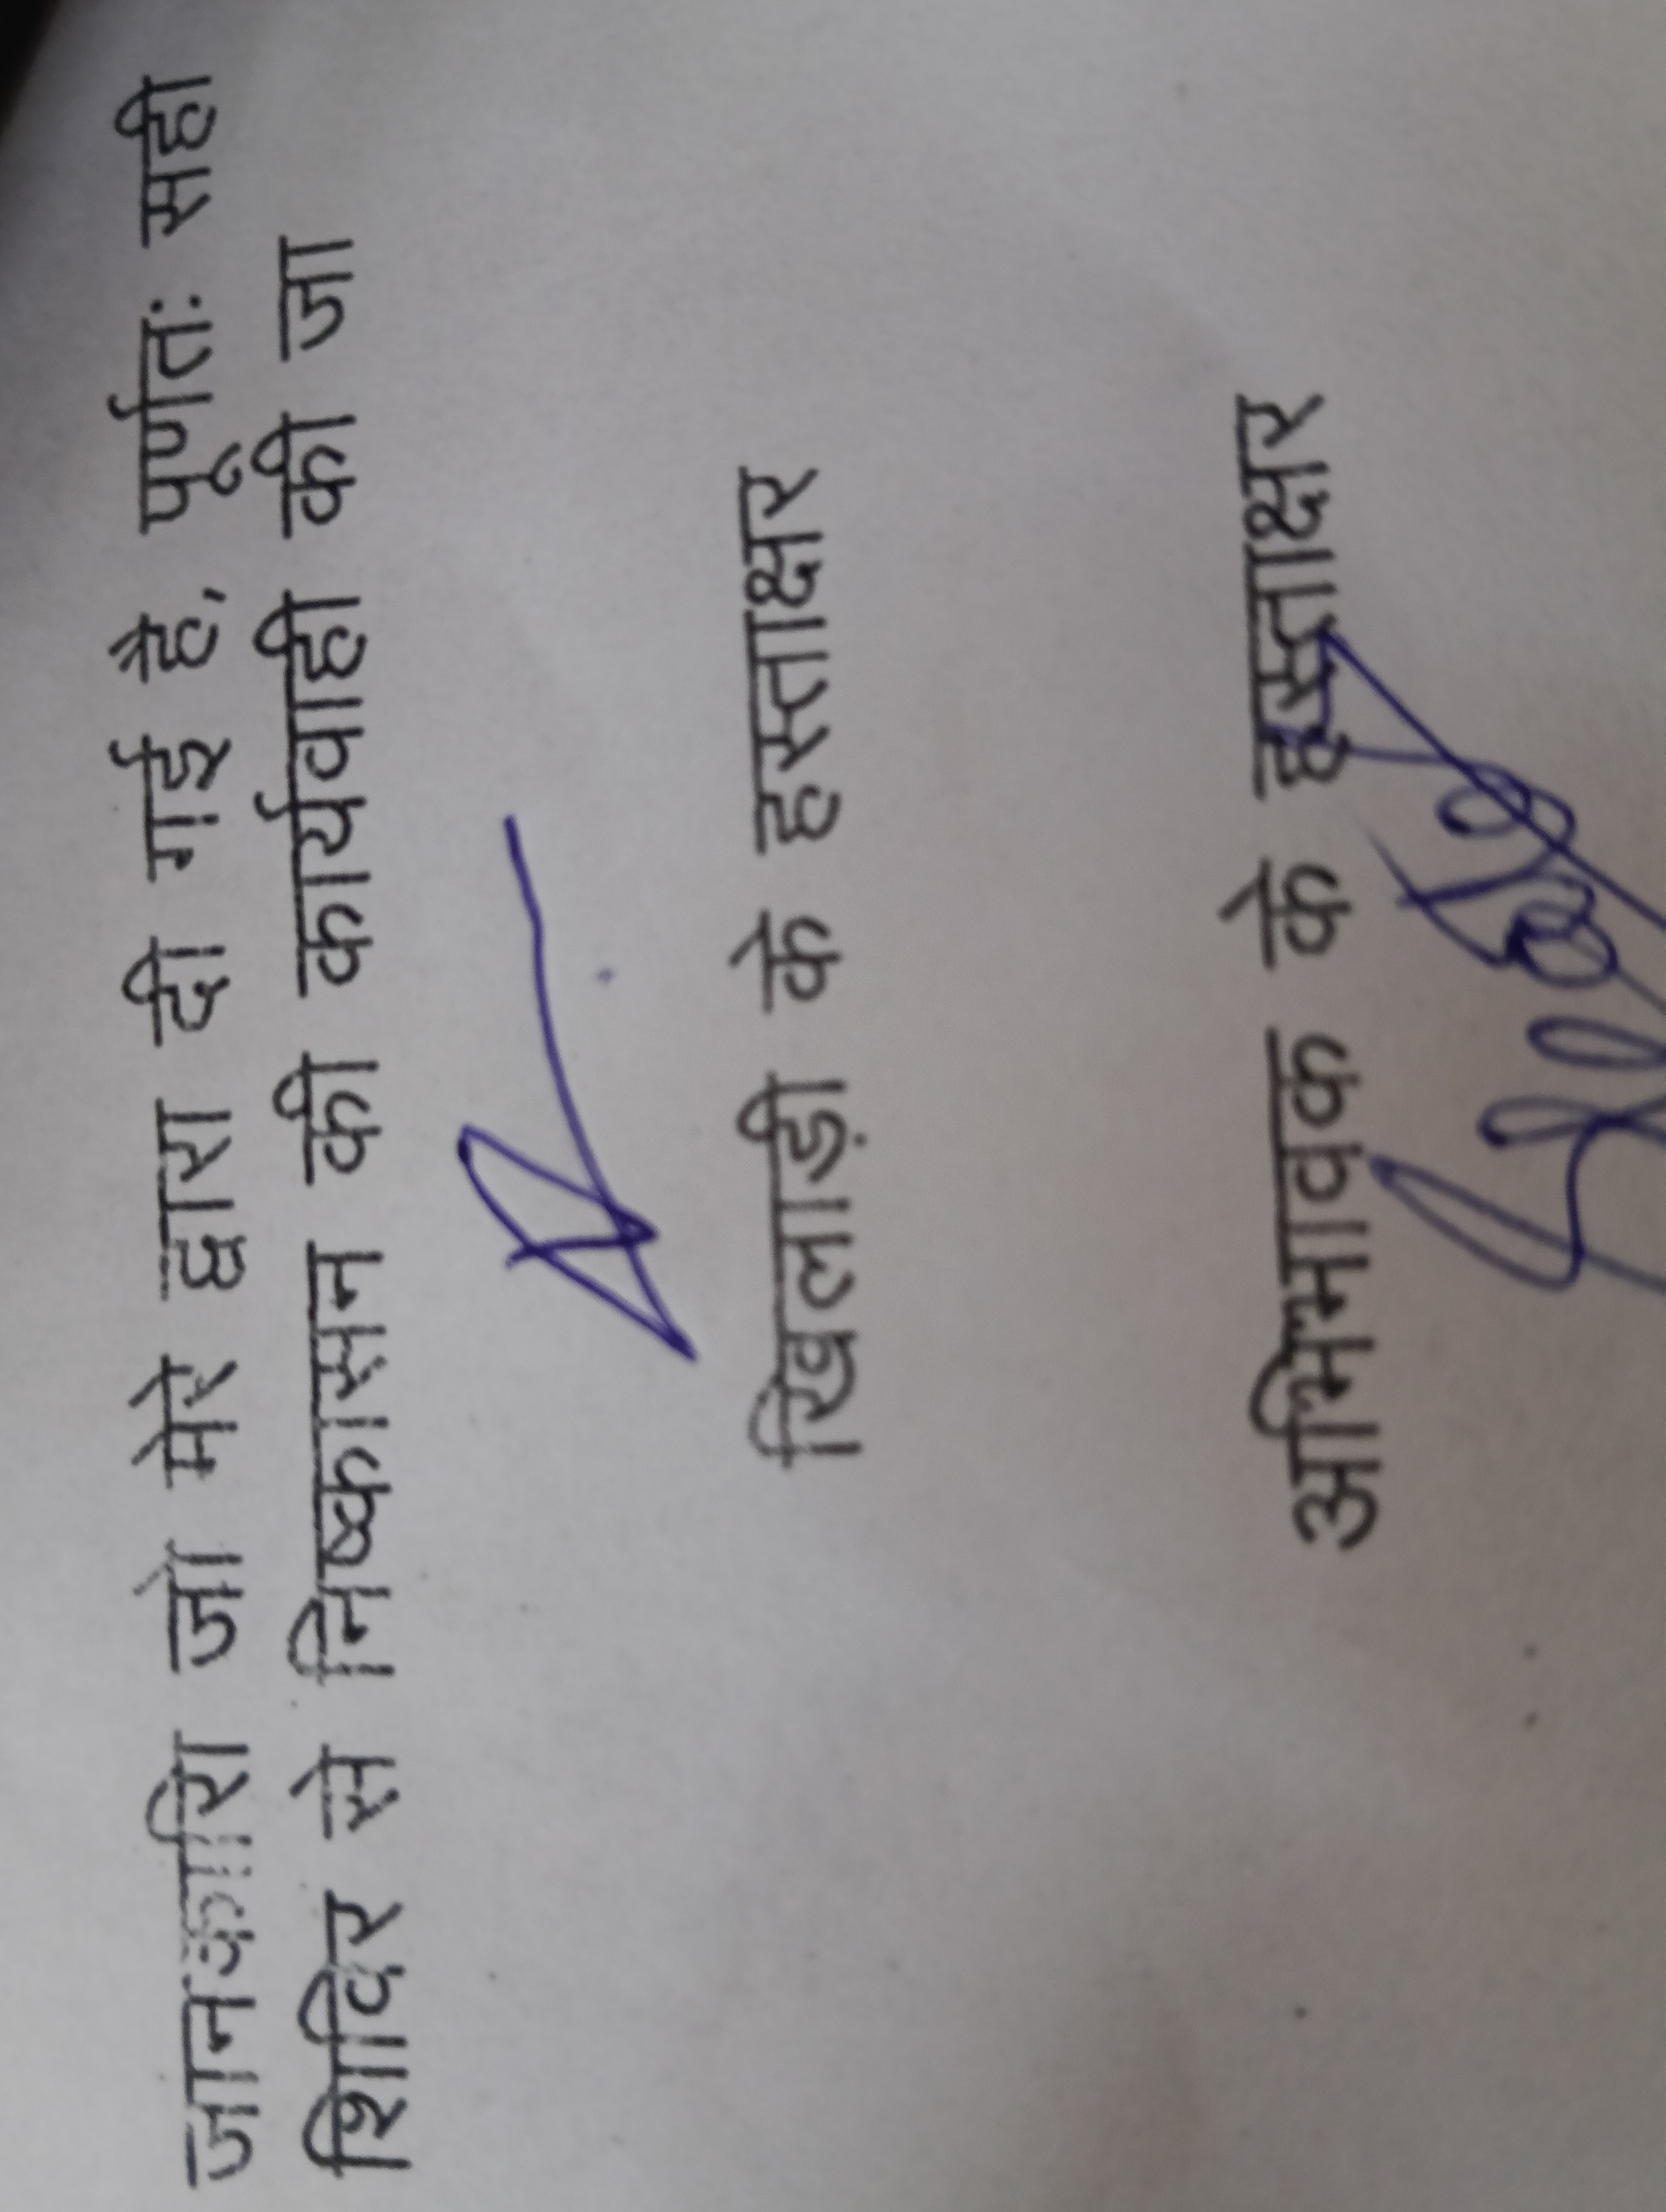 जानकारि जो मेरे द्वारा दी गई है, पूर्णतः सही
शिविर से निष्कासन की कार्यवाही की जा
खिलाड़ी के हस्ताक्षर
अभिभावक के हस्ताक्षर